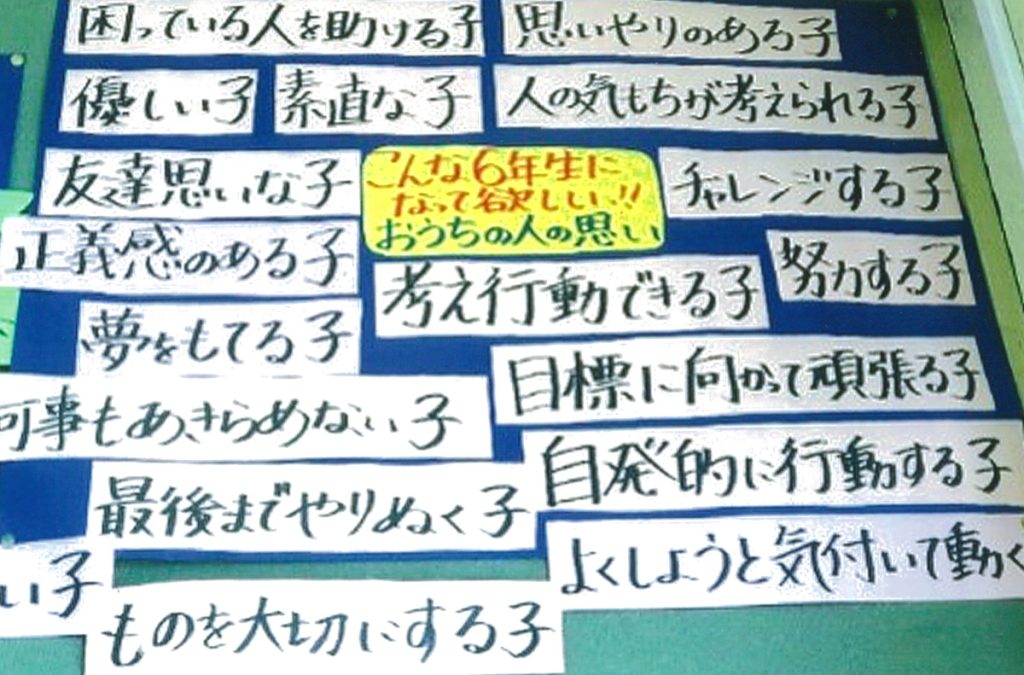 困っている人を助ける子
思いやりのある子
優しい子
素直な子
人の気もちが考えられる子
友達思いな子
こんな6年生に
なって欲しい!!
おうちの人の思い
チャレンジする子
正義感のある子
考え行動できる子
努力する子
夢をもてる子
目標に向かって頑張る子
何事もあきらめない子
自発的に行動する子
最後までやりぬく子
よくしようと気付いて動く
い子
ものを大切にする子